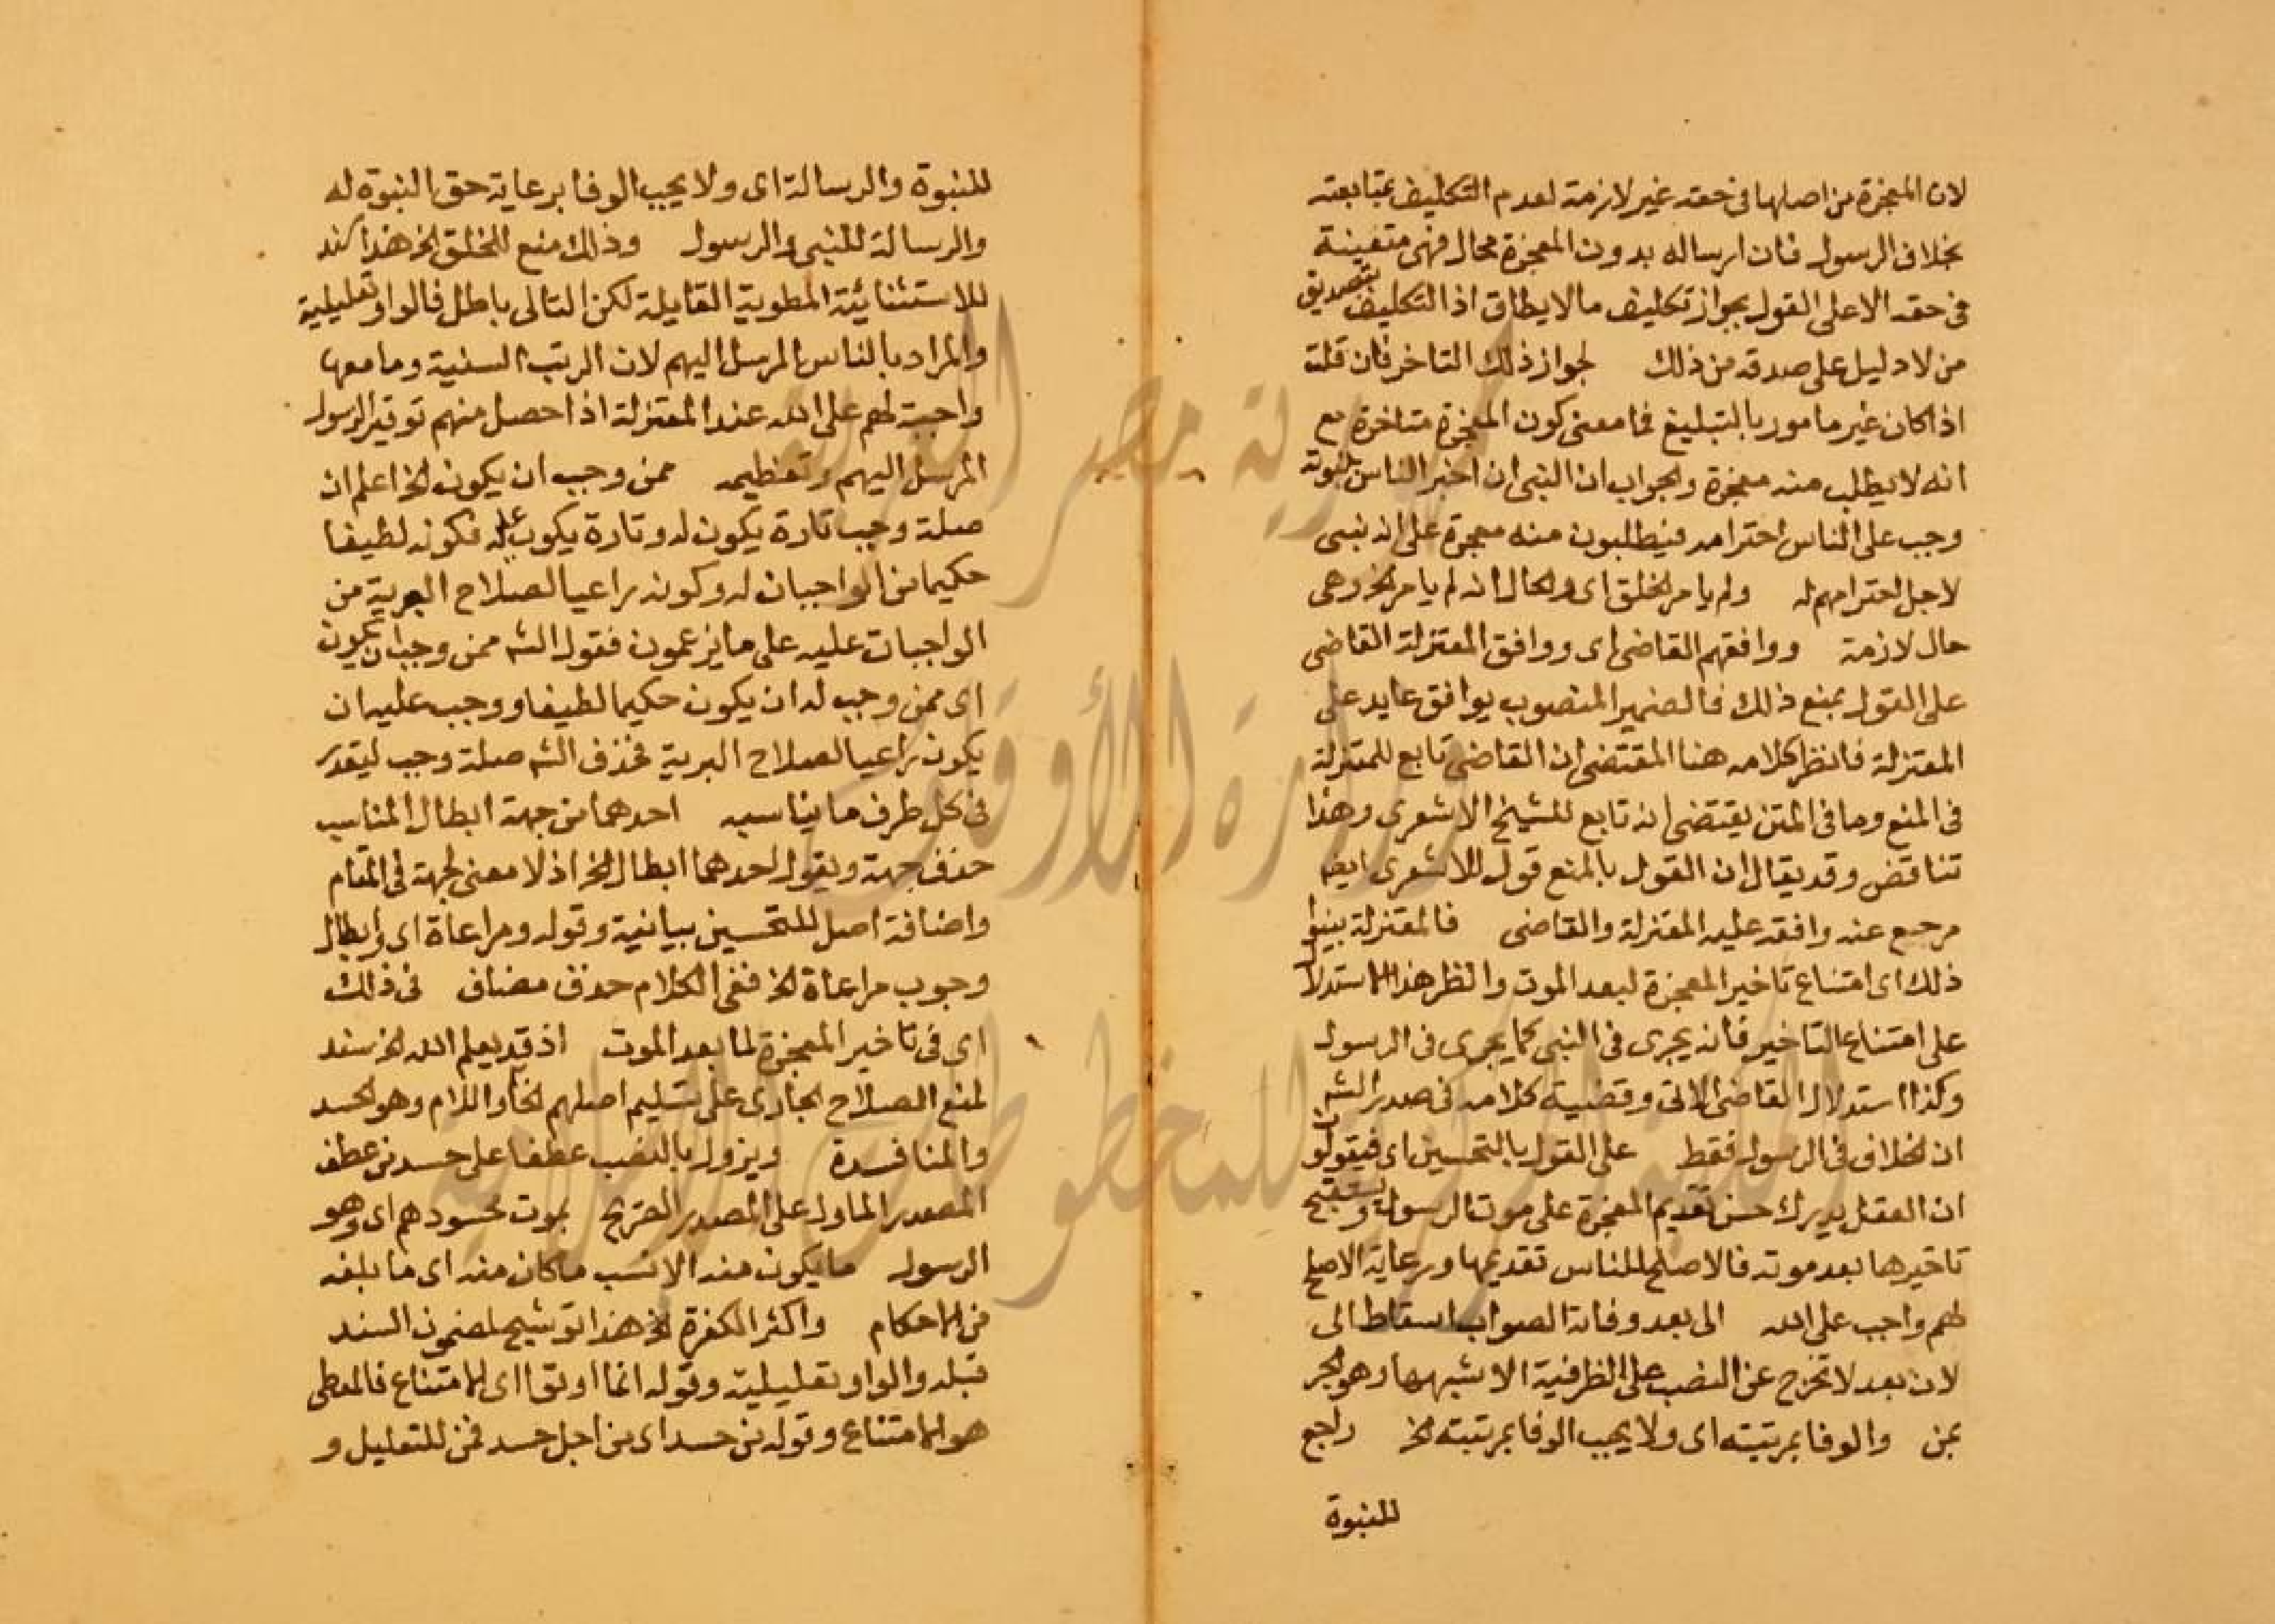 لان المعجزة من اصلها فى حقه غير لازمة لعدم التكليف بمتابعته
بخلاف الرسول فان ارساله بدون المعجزة محال فهى متعينة
فى حقه الا على القول بجواز تكليف ما لا يطاق اذ التكليف بتصديق
من لا دليل على صدقه من ذلك لجواز ذلك التاخر فان قلت
اذا كان غير مامور بالتبليغ فما معنى كون المعجزة متاخرة مع
انه لا يطلب منه معجزة والجواب ان النبى ان اخبر الناس بنبوته
وجب على الناس احترامه فيطلبون منه معجزة على انه نبى
لاجل احترامهم له ولم يامر الخلق اى والحال انه لم يامر الخ وهى
حال لازمة ووافقهم القاضى اى ووافق المعتزلة القاضى
على القول بمنع ذلك فالضمير المنصوب بوافق عايد على
المعتزلة فانظر كلامه هنا المقتضى ان القاضى تابع للمعتزلة
فى المنع وما فى المتن يقتضى انه تابع للشيخ الاشعرى وهذا
تناقض وقد يقال ان القول بالمنع قول للاشعرى ايضا
مرجع عنه وافقه عليه المعتزلة والقاضى فالمعتزلة بينوا
ذلك اى امتناع تاخير المعجزة لبعد الموت وانظر هذا الاستدلا
على امتناع التاخير فانه يجرى فى النبى كما يجرى فى الرسول
وكذا استدلال القاضى الاتى وقضية كلامه فى صدر الشه
ان الخلاف فى الرسول فقط على القول بالتحسين اى فيقولون
ان العقل يدرك حسن تقديم المعجزة على موت الرسول ويستقبح
تاخيرها بعد موته فالاصلح للناس تقديمها ورعاية الاصلح
لهم واجب على الله الى بعد وفاته الصواب اسقاط الى
لان بعد لا تخرج عن النصب على الظرفية الا شبهها وهو الجر
بمن والوفا بمرتبته اى ولا يجب الوفا بمرتبته الخ راجع
للنبوة
للنبوة والرسالة اى ولا يجب الوفا برعاية حق النبوة له
والرسالة للنبى والرسول وذلك منع للخلق الخ هذا سند
للاستثنائية المطوية القايلة لكن التالى باطل فالواو تعليلية
والمراد بالناس المرسل اليهم لان الرتب السنية وما معها
واجبة لهم على الله عند المعتزلة اذا حصل منهم توقير الرسول
المرسل اليهم وتعظيمه ممن وجب ان يكون الخ اعلم ان
صلة وجب تارة يكون له وتارة يكون عليه فكونه لطيفا
حكيما من الواجبات له وكونه راعيا لصلاح البرية من
الواجبات عليه على ما يزعمون فقول الشه ممن وجب ان يكون
اى ممن وجب له ان يكون حكيما لطيفا ووجب عليه ان
يكون راعيا لصلاح البرية فحذف الشه صلة وجب ليقدر
فى كل طرف ما يناسبه احدهما من جهة ابطال المناسب
حذف جهة ويقول احدهما ابطال الخ اذ لا معنى لجهة فى المقام
واضافة اصل للتحسين بيانية وقوله ومراعاة اى وابطال
وجوب مراعاة الخ ففى الكلام حذف مضاف فى ذلك
اى فى تاخير المعجزة لما بعد الموت اذ قد يعلم الله الخ سند
لمنع الصلاح الجارى على تسليم اصلهم الخ واللام وهو الحسد
والمنافسة ويزول بالنصب عطفا على حسد من عطف
المصدر الماول على المصدر الصريح بموت محسودهم اى وهو
الرسول ما يكون منه الانسب ما كان منه اى ما بلغه
من الاحكام واكثر الكفرة الخ هذا توشيح لمضمون السند
قبله والواو تعليلية وقوله انما اوتوا اى الامتناع فالمعطى
هو الامتناع وقوله من حسد اى من اجل حسد فمن للتعليل و